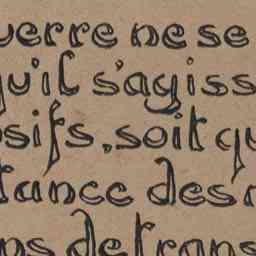 uerre ne se
qu'il s'agiss
sifs, soit qu
tance des
ns de trans